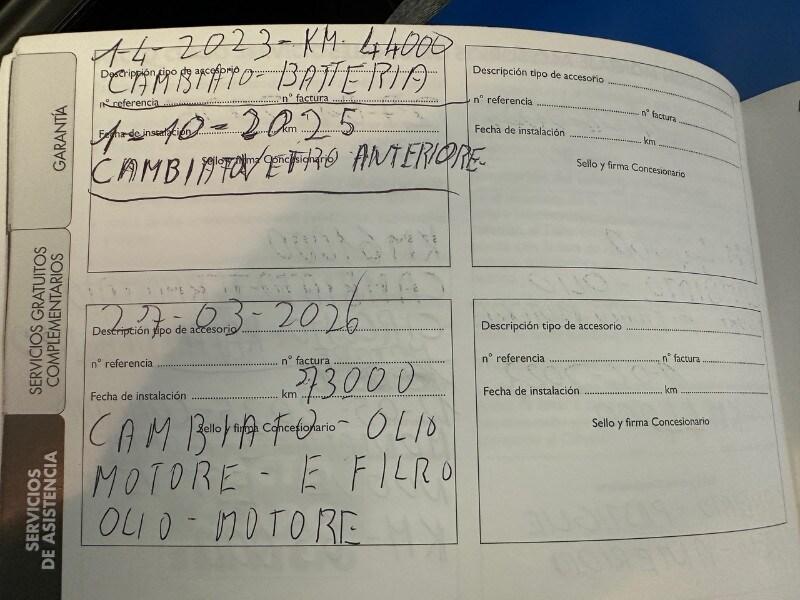 GARANTÍA
SERVICIOS GRATUITOS
COMPLEMENTARIOS
SERVICIOS
DE ASISTENCIA
1-4-2023-KM. 44000
Descripción tipo de accesorio
CAMBIATO-BATTERIA
n° referencia n° factura
Fecha de instalación km
1-10-2025
Sello y firma Concesionario
CAMBIATO VETRO ANTERIORE.
Descripción tipo de accesorio
n° referencia n° factura
Fecha de instalación km
Sello y firma Concesionario
27-03-2026
Descripción tipo de accesorio
n° referencia n° factura
Fecha de instalación km 73000
Sello y firma Concesionario
CAMBIATO-OLIO
MOTORE-E FILRO
OLIO-MOTORE
Descripción tipo de accesorio
n° referencia n° factura
Fecha de instalación km
Sello y firma Concesionario